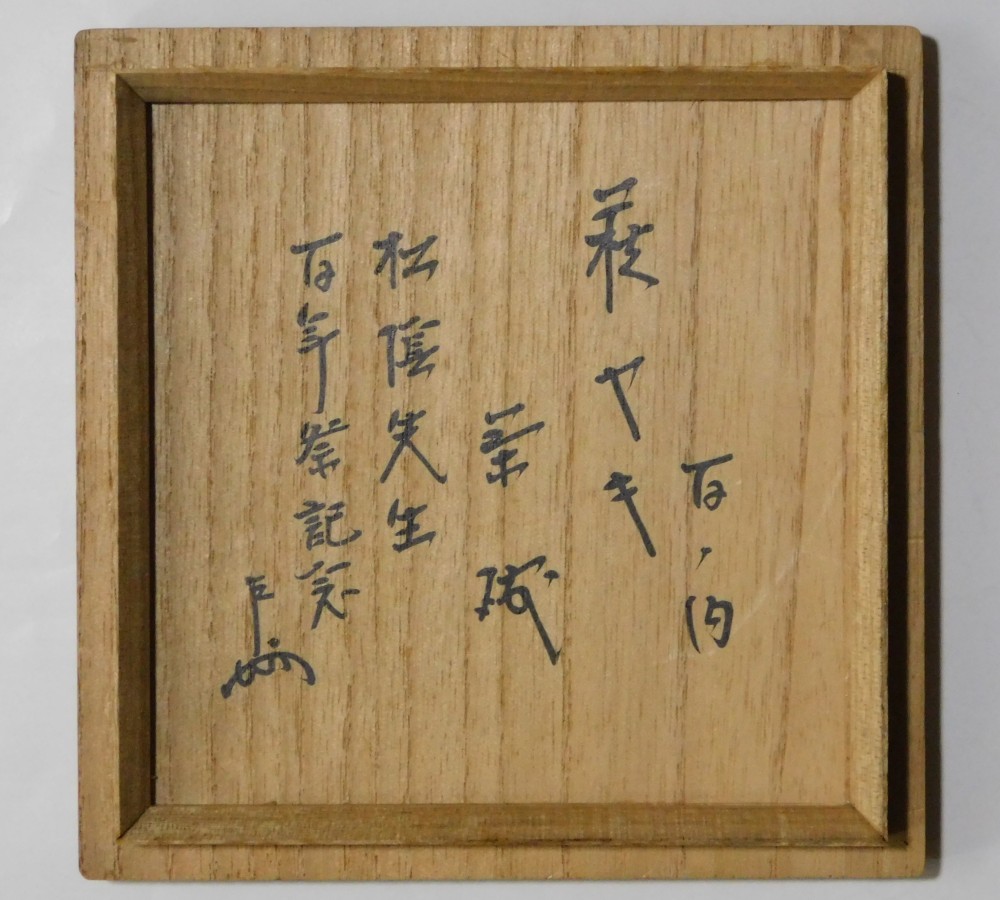 百ノ内
萩ヤキ
茶碗
松陰先生
百年祭記念